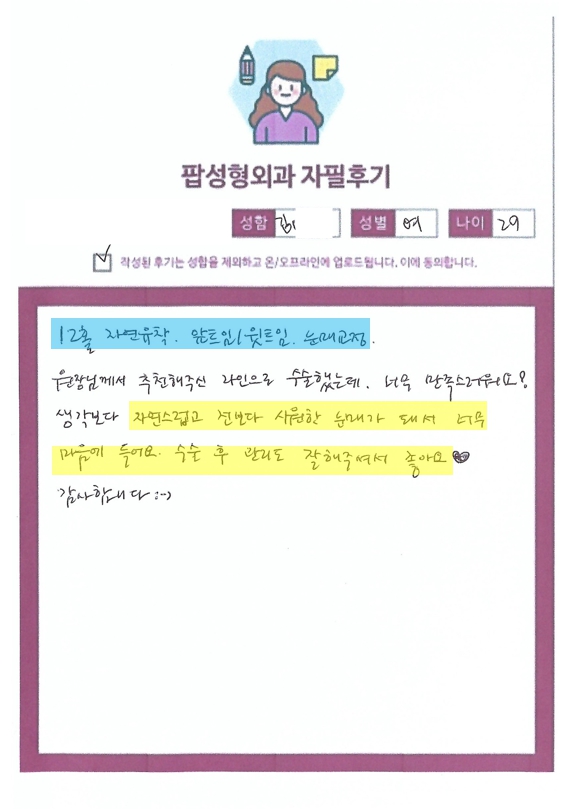 팝성형외과 자필후기
성함 김 성별 여 나이 29
작성된 후기는 성함을 제외하고 온/오프라인에 업로드됩니다. 이에 동의합니다.
12홀 자연유착. 앞트임/윗트임. 눈매교정.
원장님께서 추천해주신 라인으로 수술했는데, 너무 만족스러워요!
생각보다 자연스럽고 전보다 시원한 눈매가 돼서 너무
마음에 들어요. 수술 후 관리도 잘해주셔서 좋아요♥
감사합니다 :-)